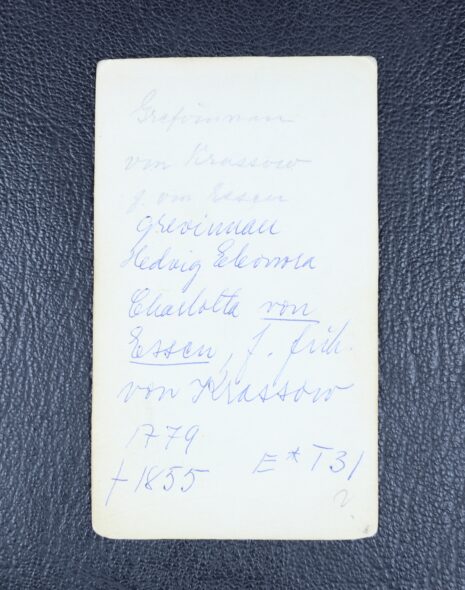 Grefvinnan
von Krassow
f. von Essen
grevinnan
Hedvig Eleonora
Charlotta von
Essen, f. frih.
von Krassow
1779
† 1855 E * T31